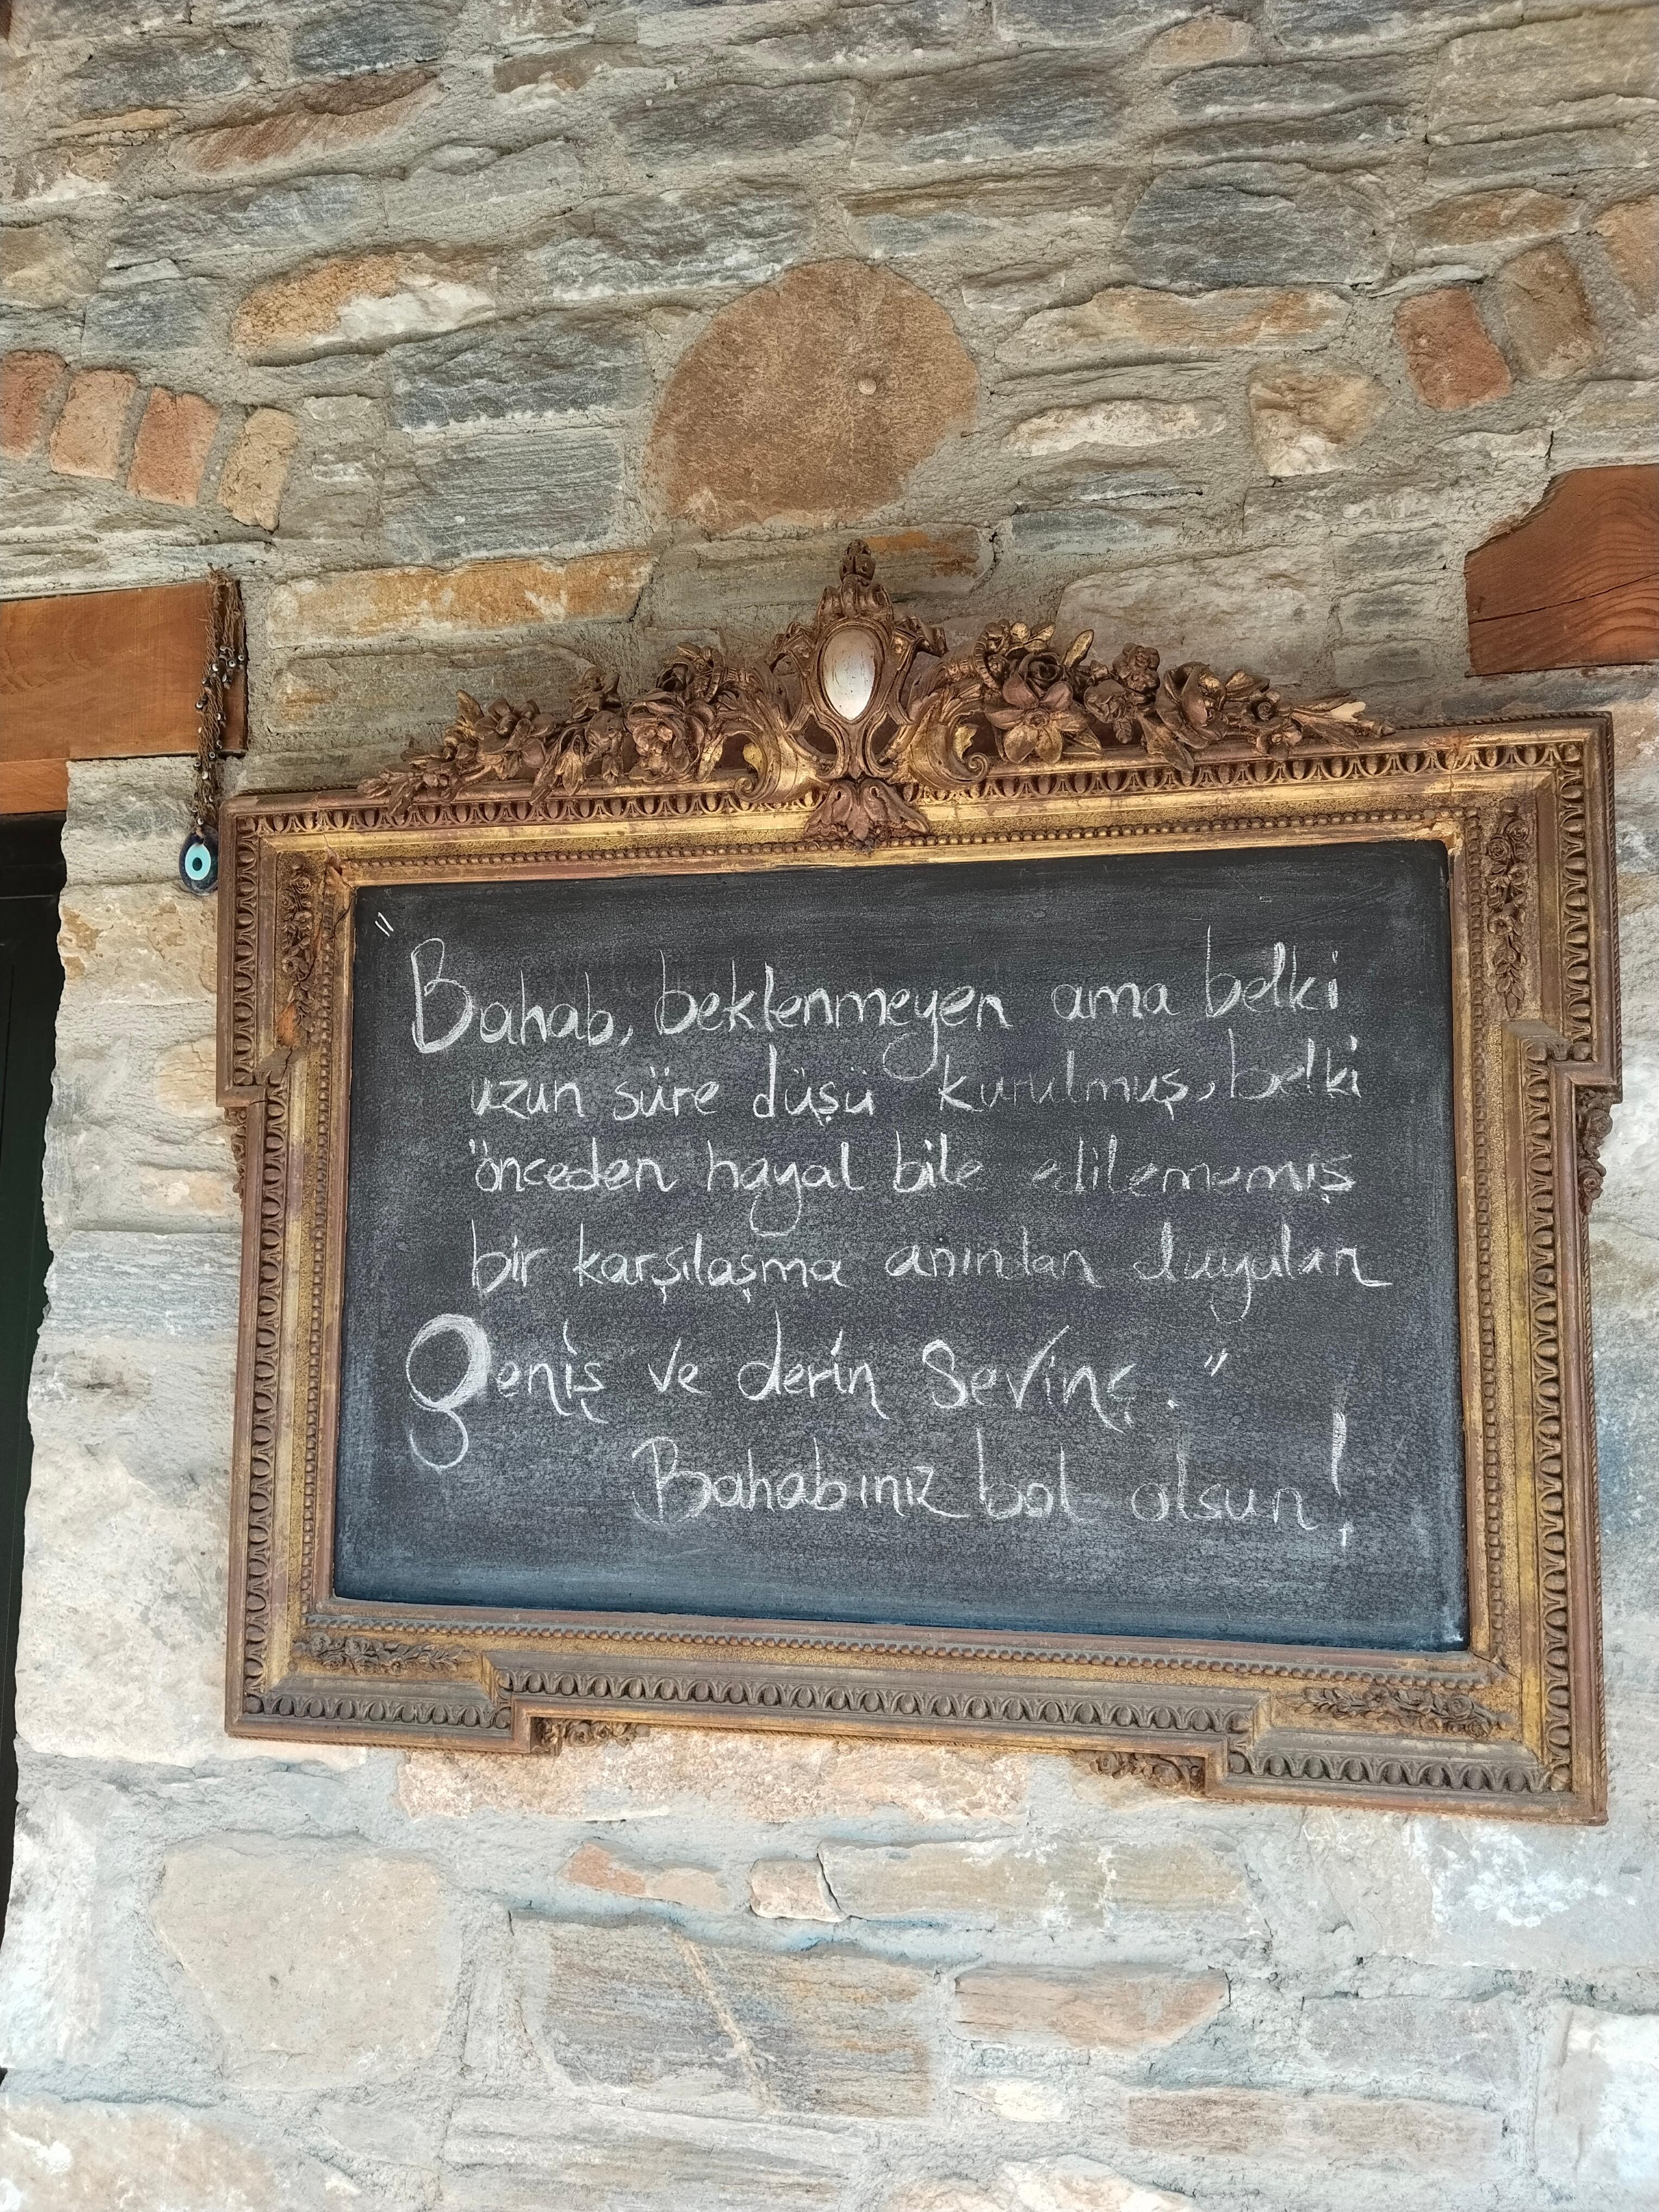 "Bahab, beklenmeyen ama belki
uzun süre düşü kurulmuş, belki
önceden hayal bile edilememiş
bir karşılaşma anından duyulan
geniş ve derin sevinç."
Bahabınız bol olsun!